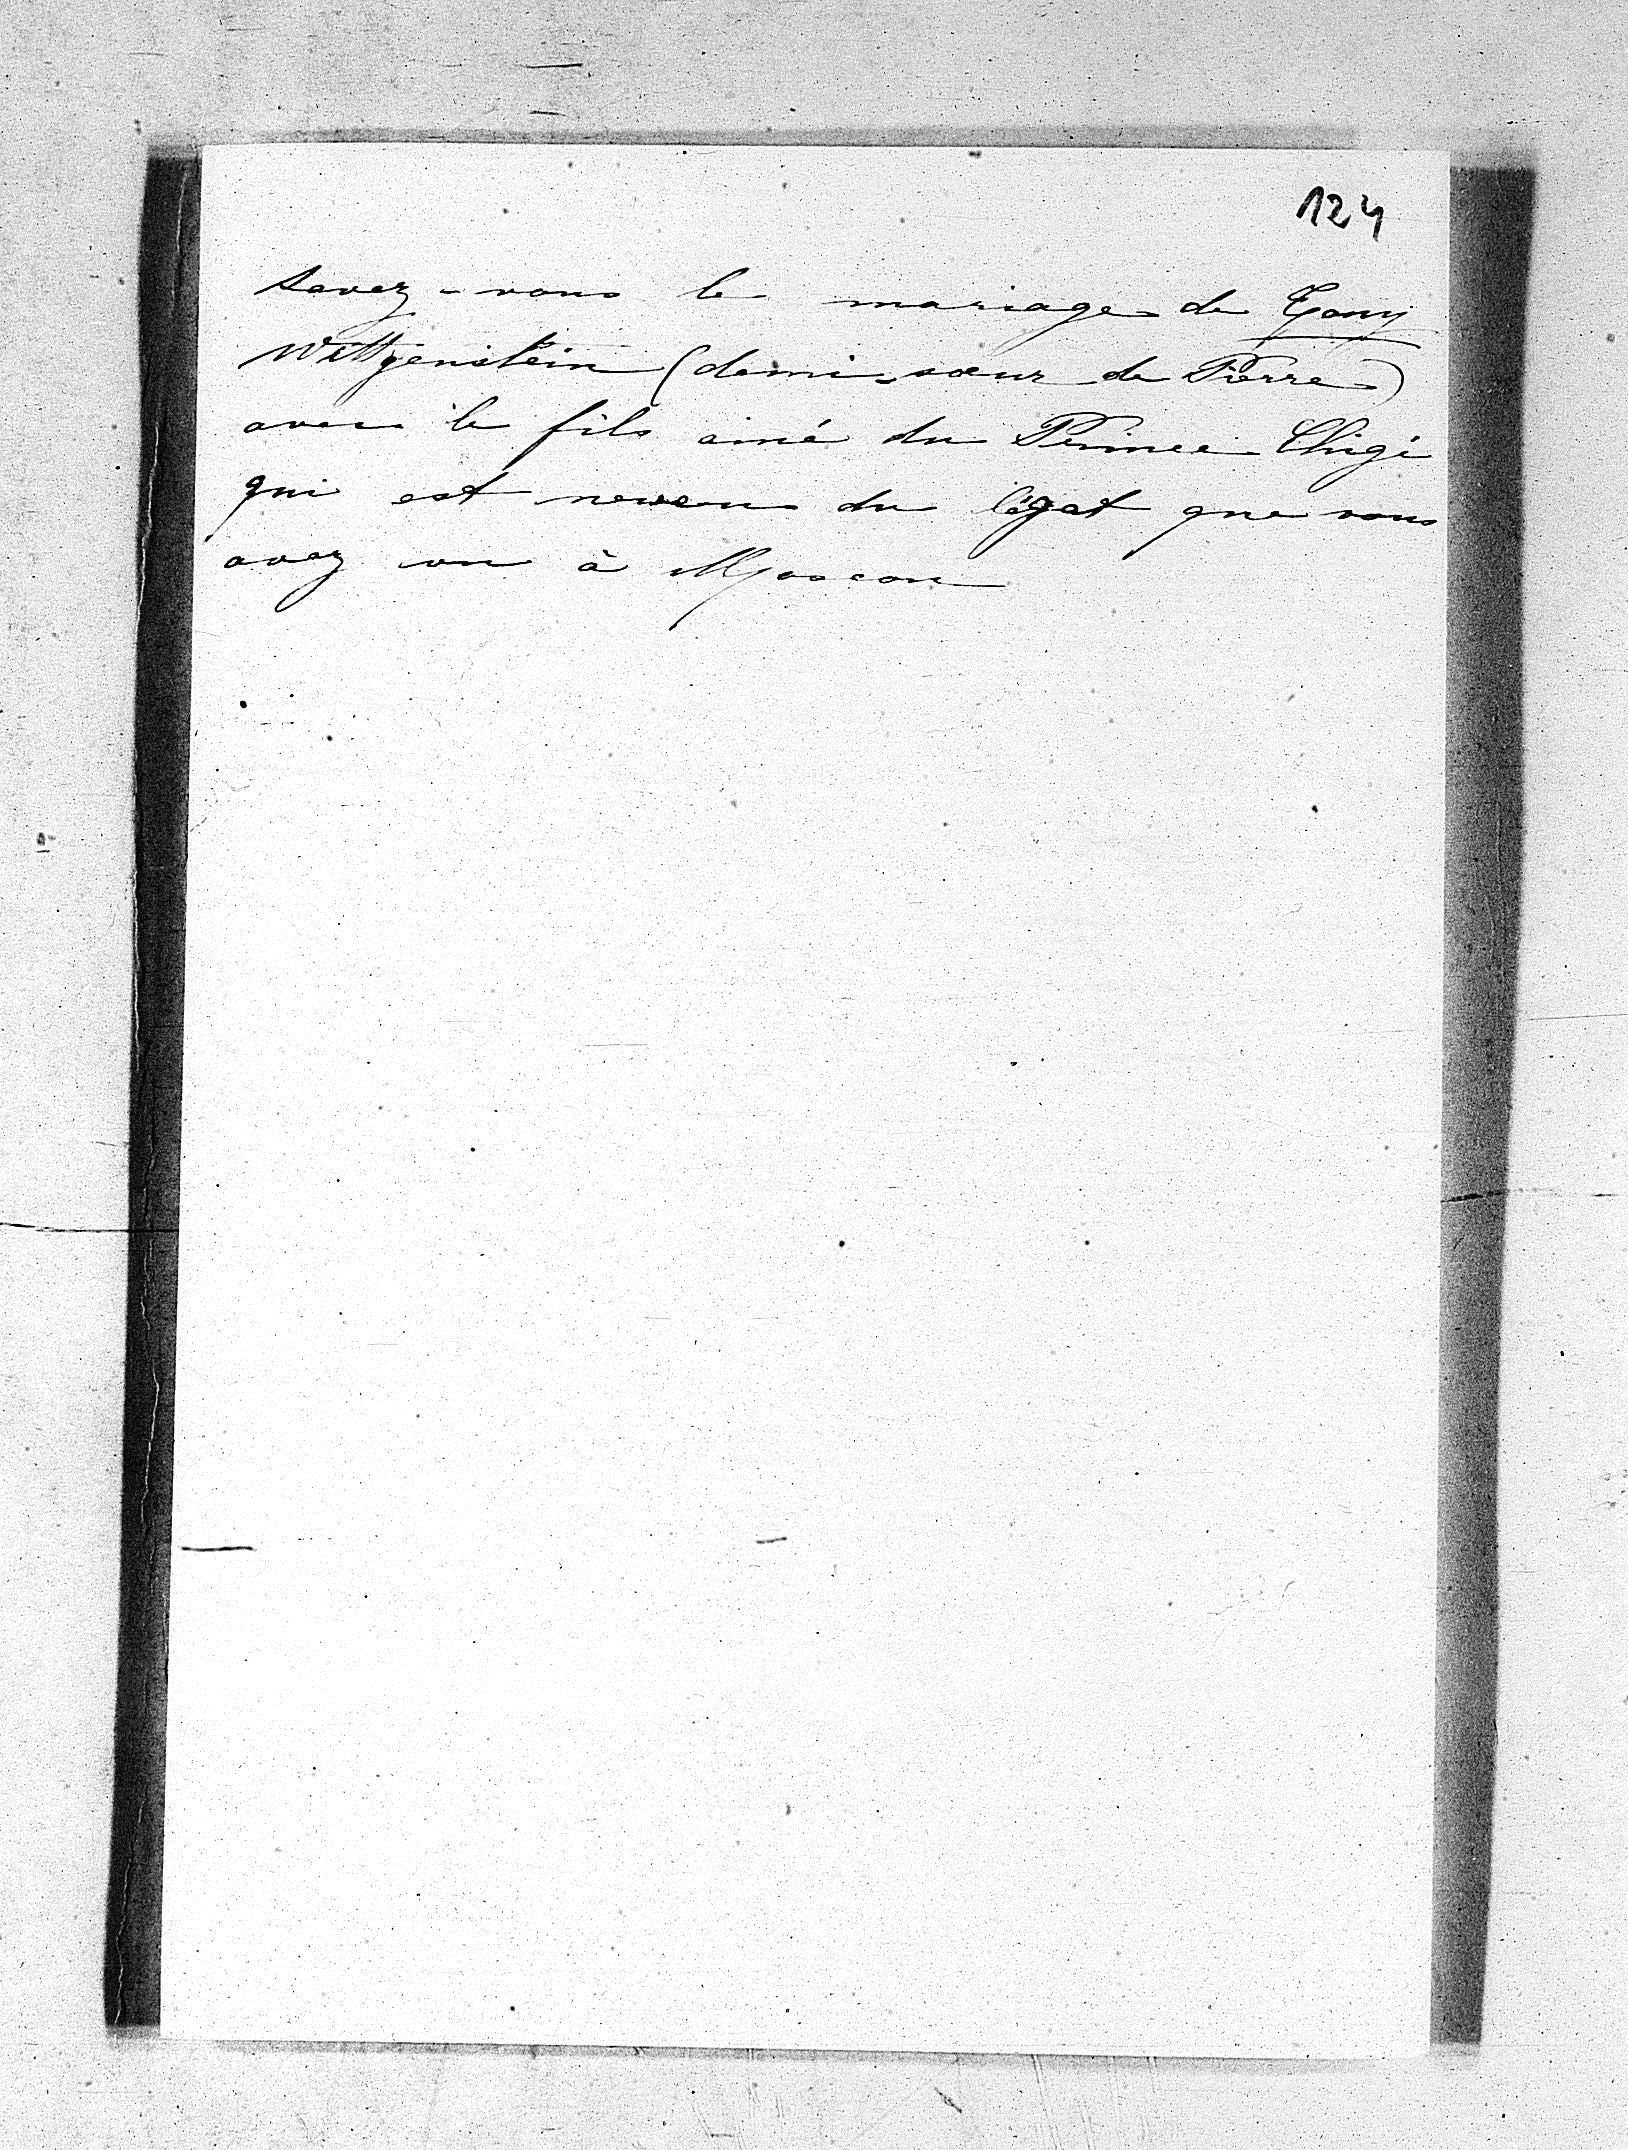 124
Savez-vous le mariage de Tony
Wittgenstein (demi-sœur de Pierre)
avec le fils ainé du Prince Chigi
qui est neveu du légat que vous
avez vu à Moscou